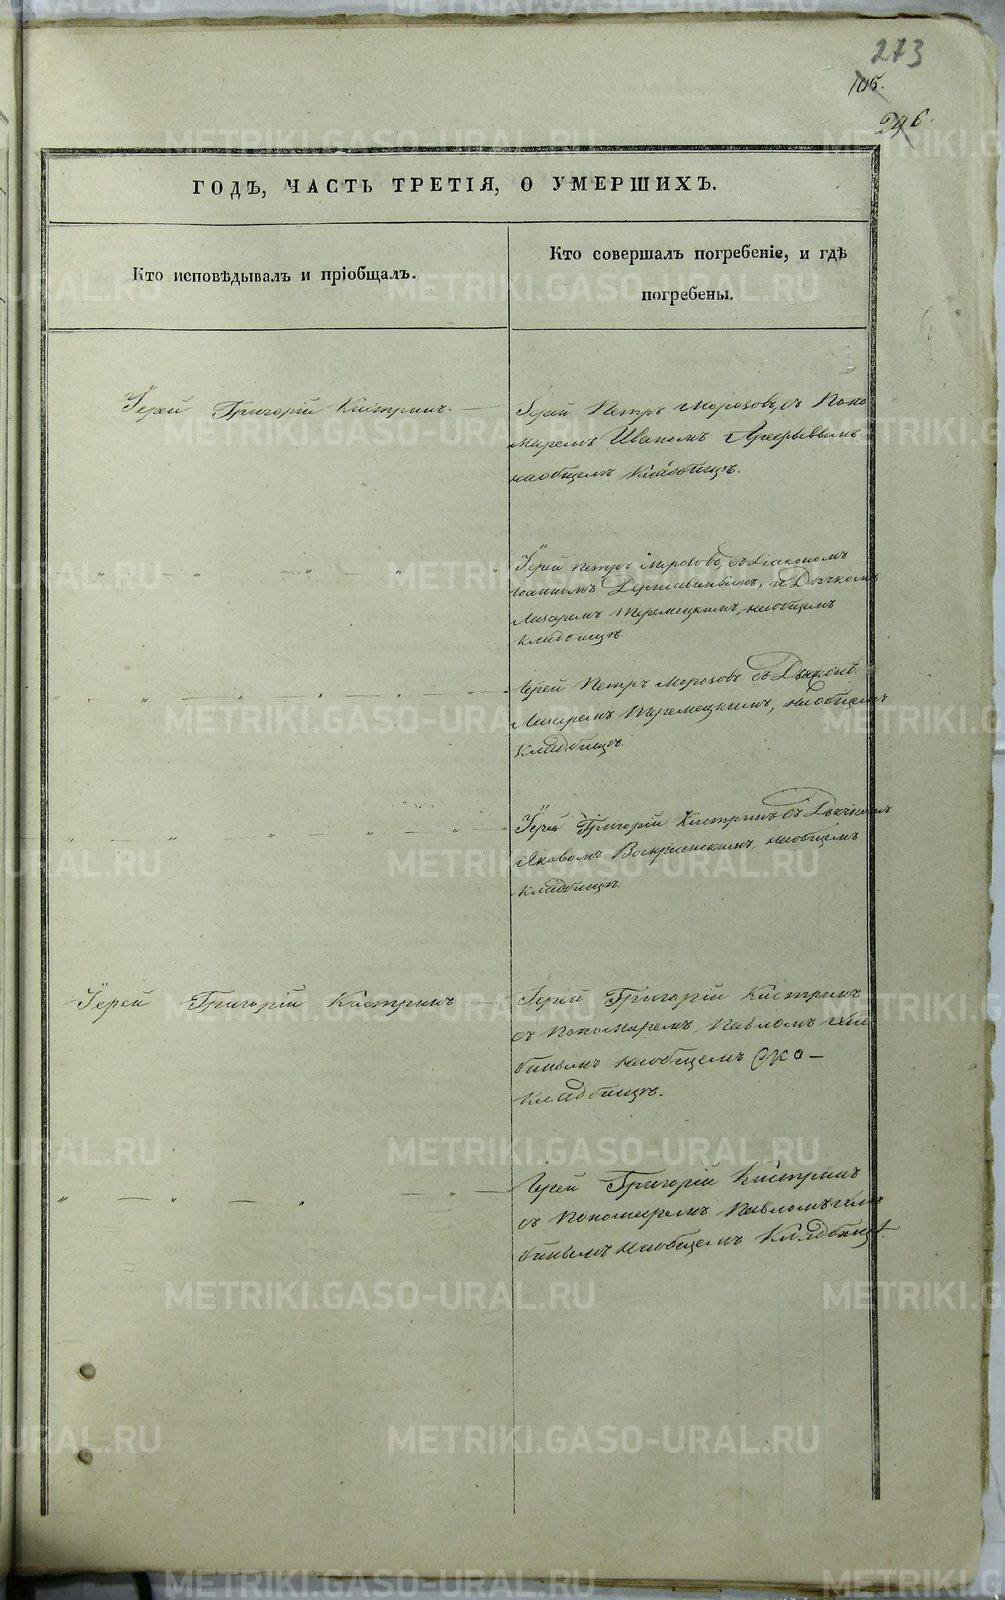 273
105.
296.
ГОДЪ, ЧАСТЬ ТРЕТІЯ, О УМЕРШИХЪ.
Кто исповѣдывалъ и пріобщалъ.
Кто совершалъ погребеніе, и гдѣ
погребены.
Іерей Григорій Кистринъ. —
Іерей Петръ Морозовъ, съ Поно
маремъ Иваномъ
наобщемъ Кладбищѣ.
Іерей Петръ Морозовъ, съ Діакономъ
Іоанномъ Державинымъ, и Дьячкомъ
Лазаремъ Теремецкимъ, наобщемъ
Кладбищѣ
Іерей Петръ Морозовъ съ Дьячкомъ
Лазаремъ Теремецкимъ, наобщемъ
Кладбищѣ.
Іерей Григорій Кистринъ съ Дьячкомъ
Яковомъ Воскресенскимъ, наобщемъ
Кладбищѣ.
Іерей Григорій Кистринъ —
Іерей Григорій Кистринъ
съ Пономаремъ Павломъ
наобщемъ
Кладбищѣ.
Іерей Григорій Кистринъ
съ Пономаремъ Павломъ
наобщемъ Кладбищѣ.
METRIKI.GASO-URAL.RU